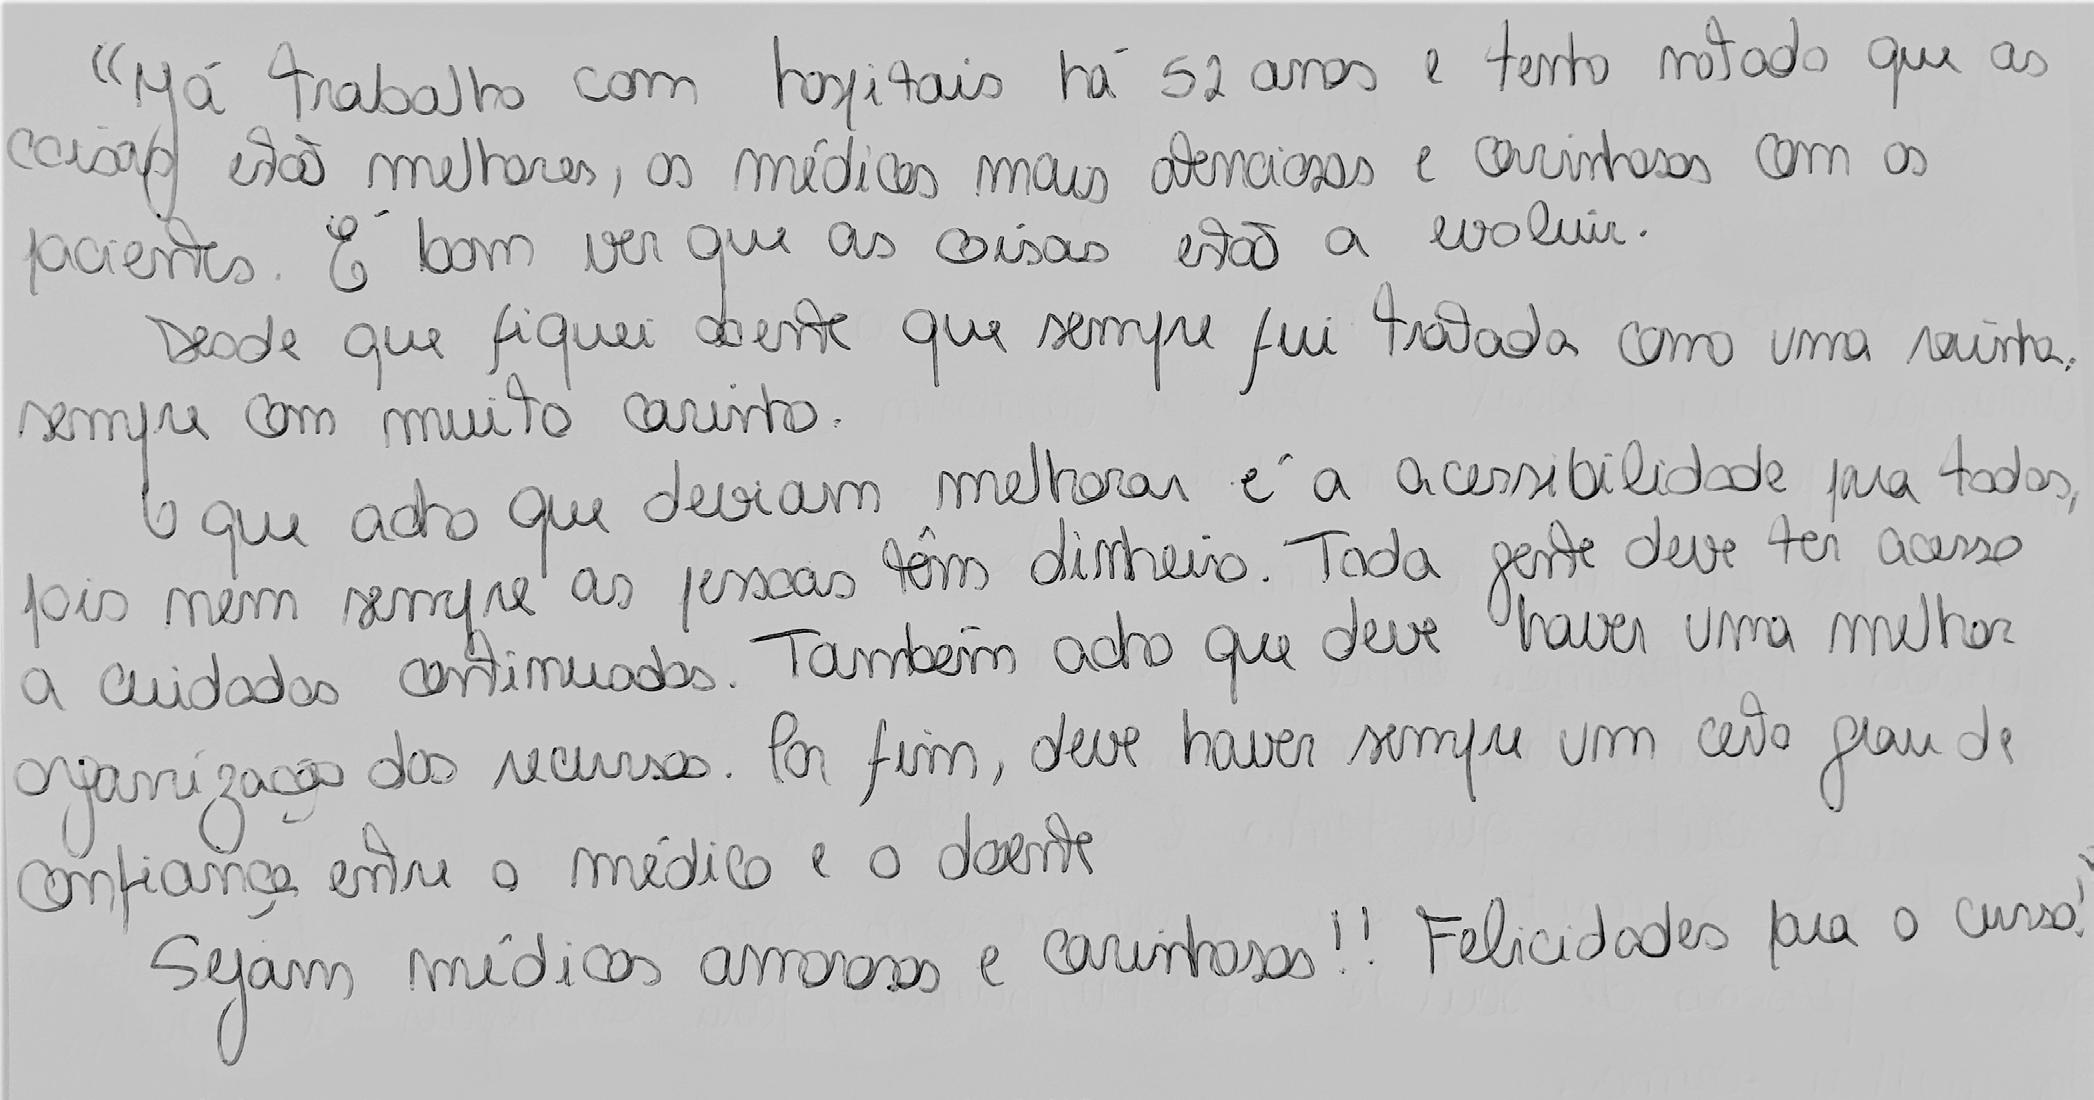 “Já trabalho com hospitais há 52 anos e tenho notado que as
coisas estão melhores, os médicos mais atenciosos e carinhosos com os
pacientes. É bom ver que as coisas estão a evoluir.
Desde que fiquei doente que sempre fui tratada como uma rainha.
sempre com muito carinho.
O que acho que deviam melhorar é a acessibilidade para todos,
pois nem sempre as pessoas têm dinheiro. Toda gente deve ter acesso
a cuidados continuados. Também acho que deve haver uma melhor
organização dos recursos. Por fim, deve haver sempre um certo grau de
confiança entre o médico e o doente
Sejam médicos amorosos e carinhosos!! Felicidades para o curso!”